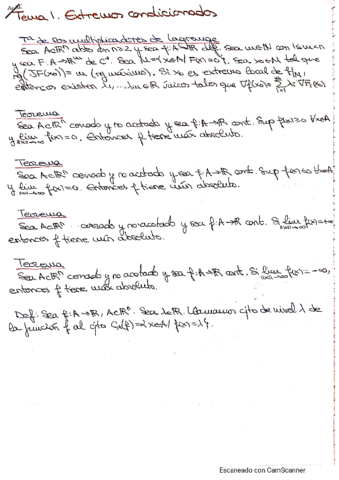 Tema 1. Extremos condicionados
Tª de los multiplicadores de Lagrange
Sea A⊂ℝⁿ abto con n≥2 y sea f: A→ℝ dif. Sea m∈ℕ con 1≤m<n
y sea F: A→ℝᵐ de C¹. Sea M={x∈A/ F(x)=0}. Sea x₀∈M tal que
rg(JF(x₀))=m (rg máximo). Si x₀ es extremo local de f|M,
entonces existen λ₁,...,λm∈ℝ únicos tales que ∇f(x₀)=∑ λᵢ∇Fᵢ(x₀)
Teorema
Sea A⊂ℝⁿ cerrado y no acotado y sea f: A→ℝ cont. Sup f(x)≥0 ∀x∈A
y lim f(x)=0. Entonces f tiene máx absoluto.
||x||→∞
Teorema
Sea A⊂ℝⁿ cerrado y no acotado y sea f: A→ℝ cont. Sup f(x)≤0 ∀x∈A
y lim f(x)=0. Entonces f tiene mín absoluto.
||x||→∞
Teorema
Sea A⊂ℝⁿ cerrado y no acotado y sea f: A→ℝ cont. Si lim f(x)=+∞,
||x||→∞
entonces f tiene mín absoluto.
Teorema
Sea A⊂ℝⁿ cerrado y no acotado y sea f: A→ℝ cont. Si lim f(x)=-∞,
||x||→∞
entonces f tiene máx absoluto.
Def: Sea f: A→ℝ, A⊂ℝⁿ. Sea λ∈ℝ. Llamamos cjto de nivel λ de
la función f al cjto Cλ(f)={x∈A/ f(x)=λ}.
Escaneado con CamScanner